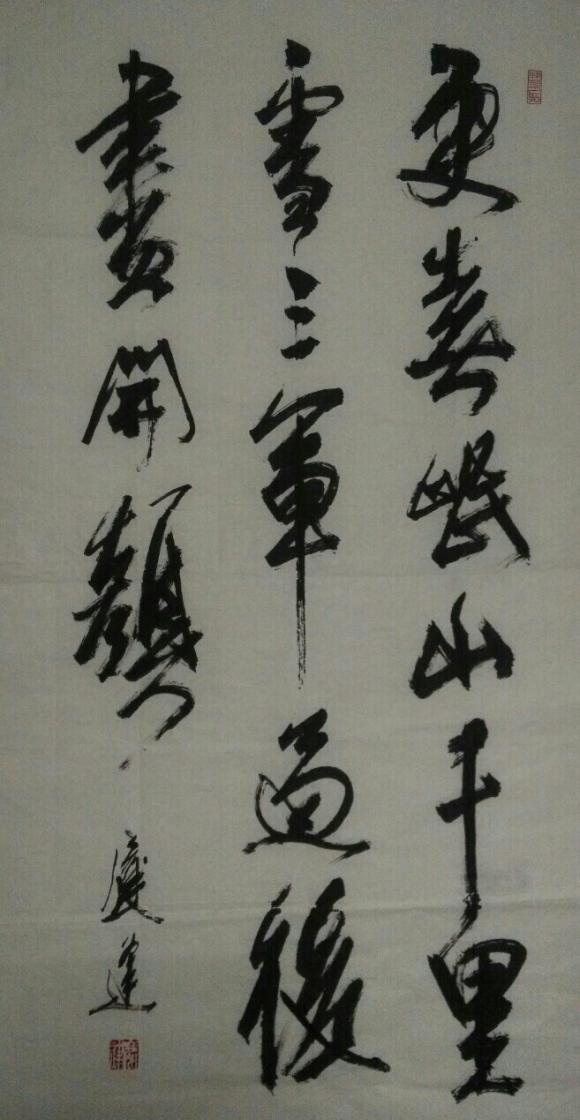 更喜岷山千里
雪三军過後
盡開顏
慶達